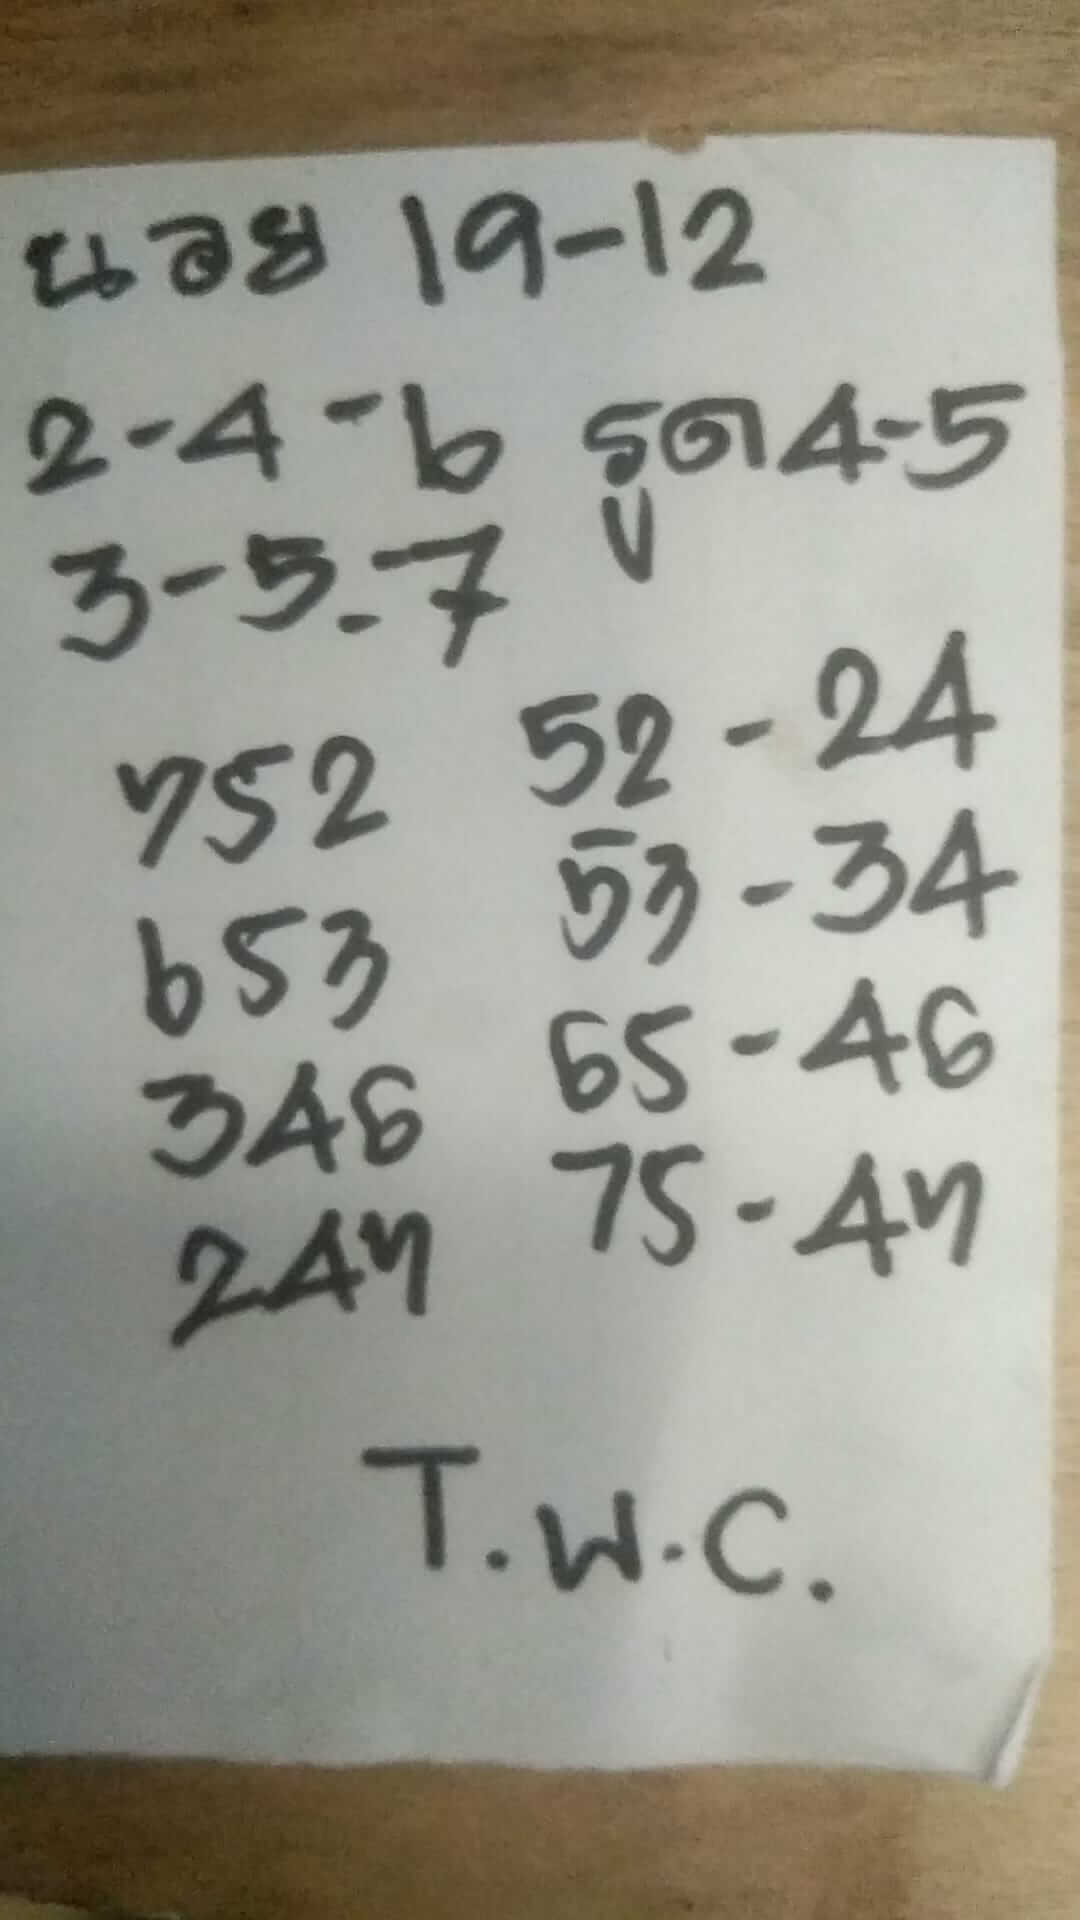 นอย 19-12
2-4-6 รูด 4-5
3-5-7
752 52-24
653 53-34
346 65-46
247 75-47
T.W.C.